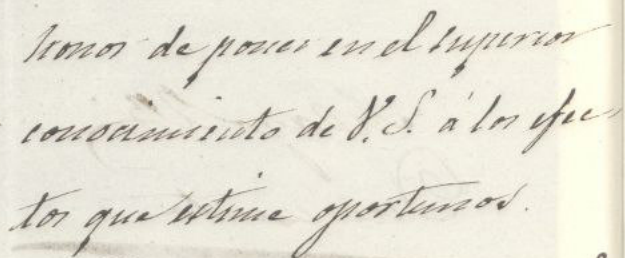 honor de poner en el superior
conocimiento de V. S. á los efec-
tos que estime oportunos.